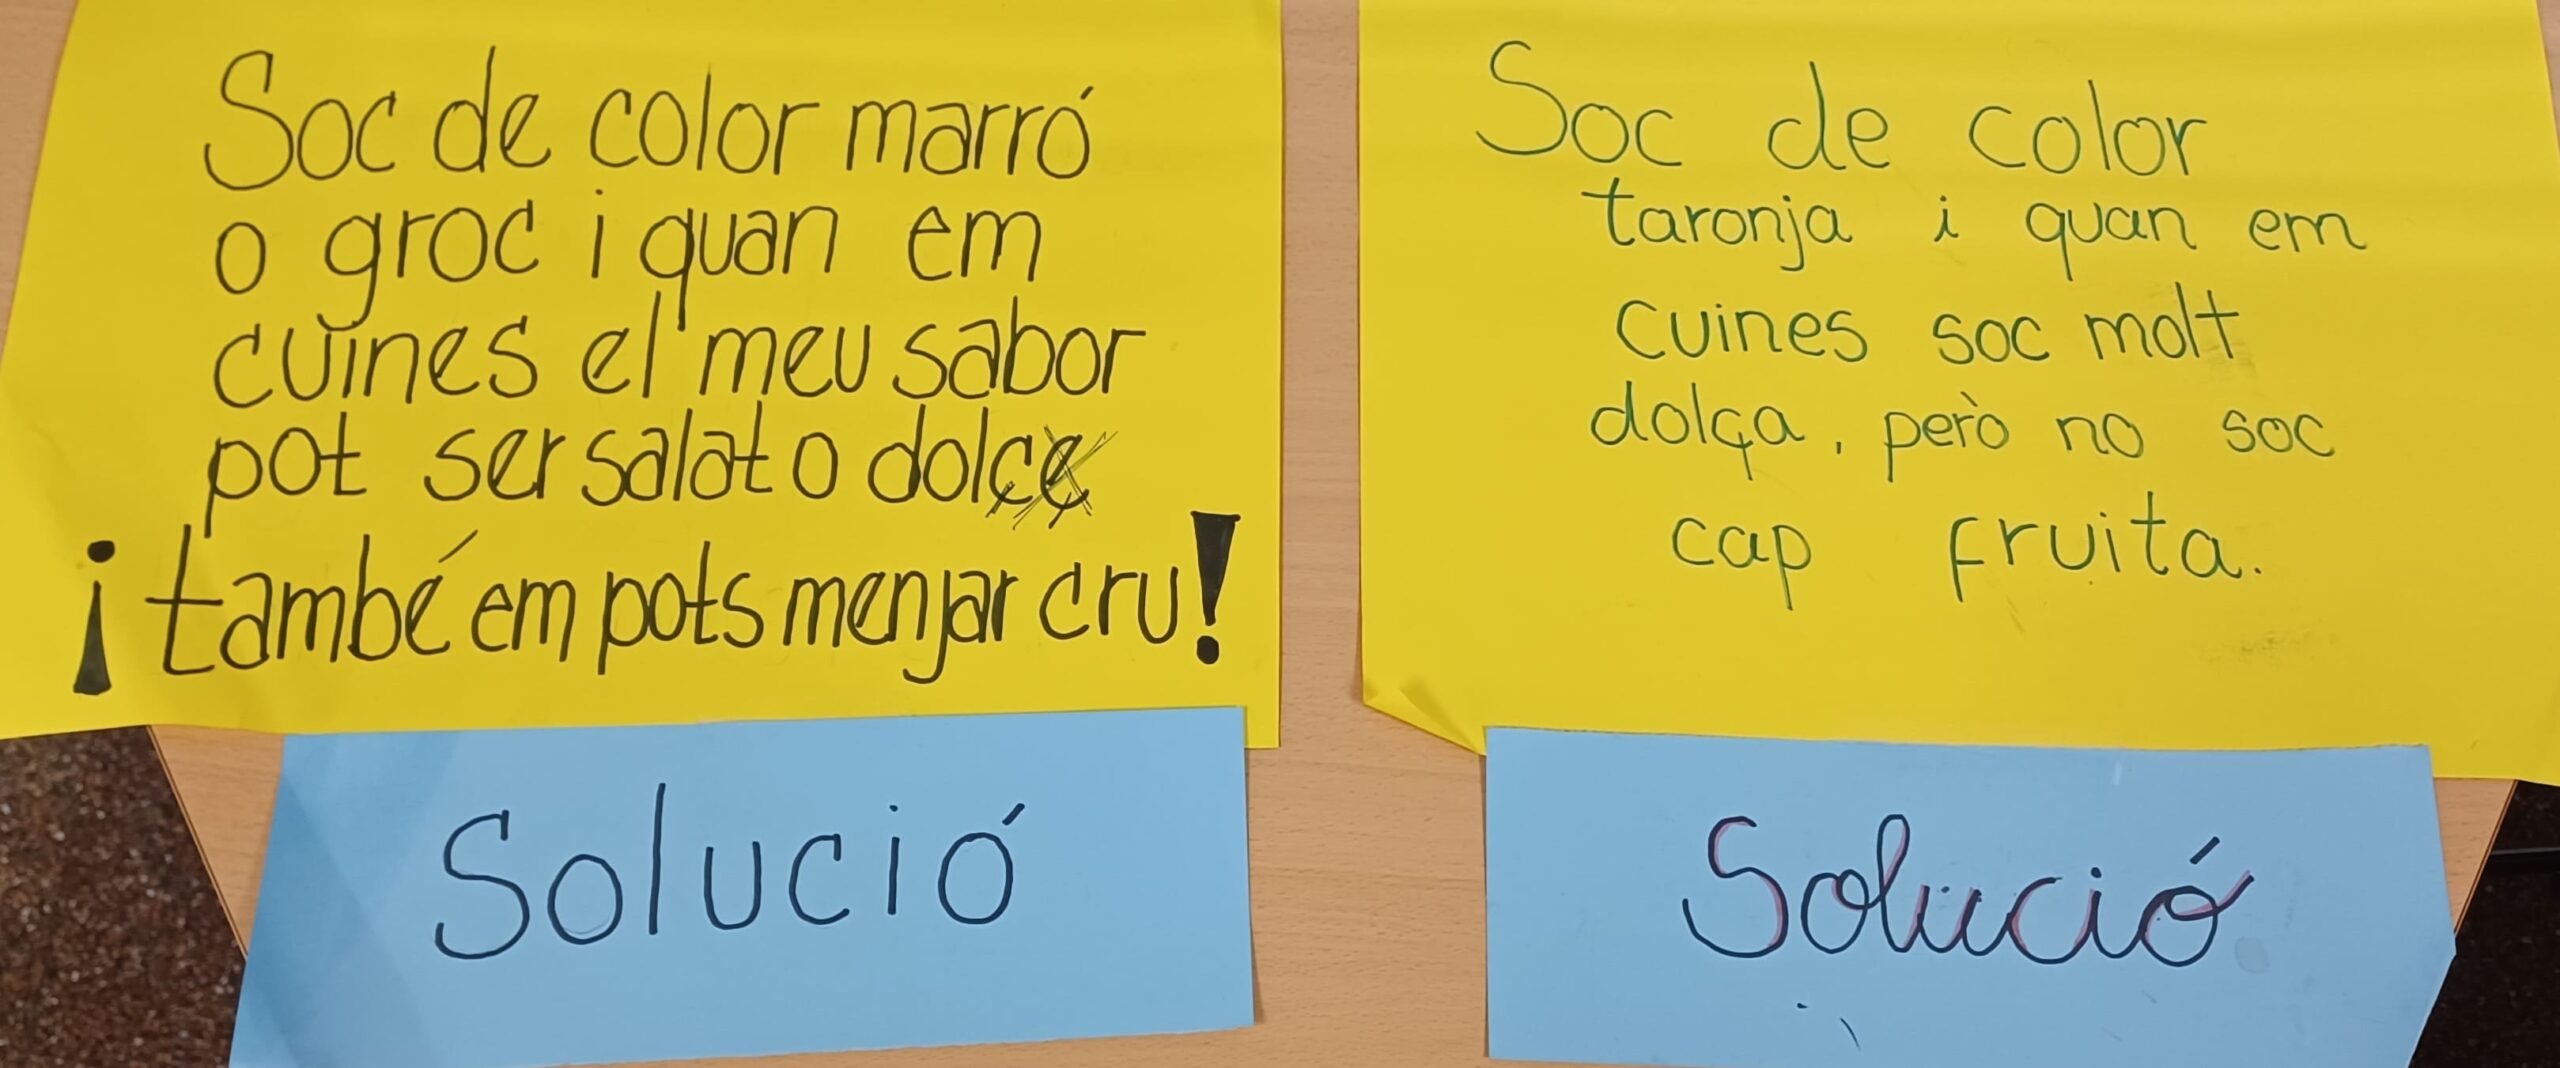 Soc de color marró
o groc i quan em
cuines el meu sabor
pot ser salat o dolç
¡també em pots menjar cru!
Solució
Soc de color
taronja i quan em
cuines soc molt
dolça, però no soc
cap fruita.
Solució